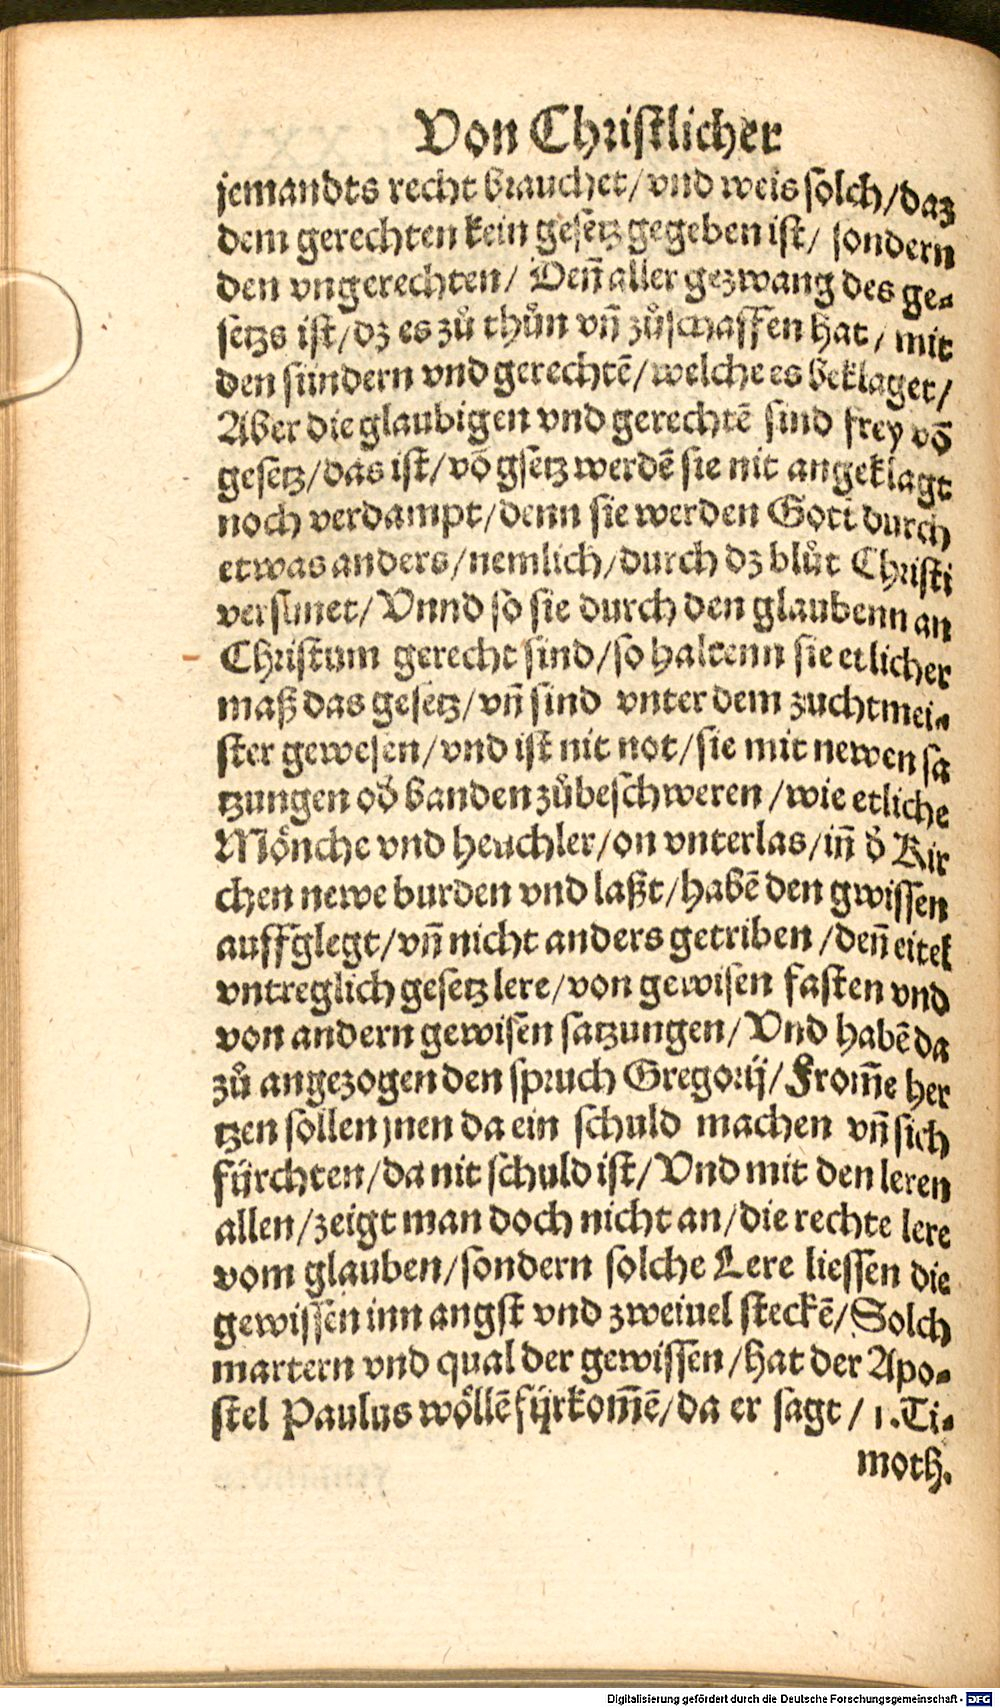 Von Christlicher
jemandts recht brauchet/ vnd weis solch/daz
dem gerechten kein gesetz gegeben ist/ sondern
den vngerechten/ Deñ aller gezwang des ge-
setzs ist/dz es zů thůn vñ zůschaffen hat/ mit
den sündern vnd gerechtẽ/welche es beklaget/
Aber die glaubigen vnd gerechtẽ sind frey võ
gesetz/das ist/võ gsetz werdẽ sie nit angeklagt
noch verdampt/denn sie werden Gott durch
etwas anders/nemlich/durch dz blůt Christi
versünet/Vnnd so sie durch den glaubenn an
Christum gerecht sind/so haltenn sie etlicher
maß das gesetz/vñ sind vnter dem zuchtmei-
ster gewesen/vnd ist nit not/sie mit newen sa
tzungen oð banden zůbeschweren/wie etliche
Mönche vnd heuchler/on vnterlas/iñ ð Kir
chen newe burden vnd laßt/habẽ den gwissen
auffglegt/vñ nicht anders getriben/deñ eitel
vntreglich gesetz lere/von gewisen fasten vnd
von andern gewisen satzungen/Vnd habẽ da
zů angezogen den spruch Gregorij/From̃e her
tzen sollen jnen da ein schuld machen vñ sich
fürchten/da nit schuld ist/Vnd mit den leren
allen/zeigt man doch nicht an/die rechte lere
vom glauben/sondern solche Lere liessen die
gewissen inn angst vnd zweiuel steckẽ/Solch
martern vnd qual der gewissen/hat der Apo-
stel Paulus wöllẽ fürkom̃ẽ/da er sagt/1.Ti-
moth.
Digitalisierung gefördert durch die Deutsche Forschungsgemeinschaft - DFG